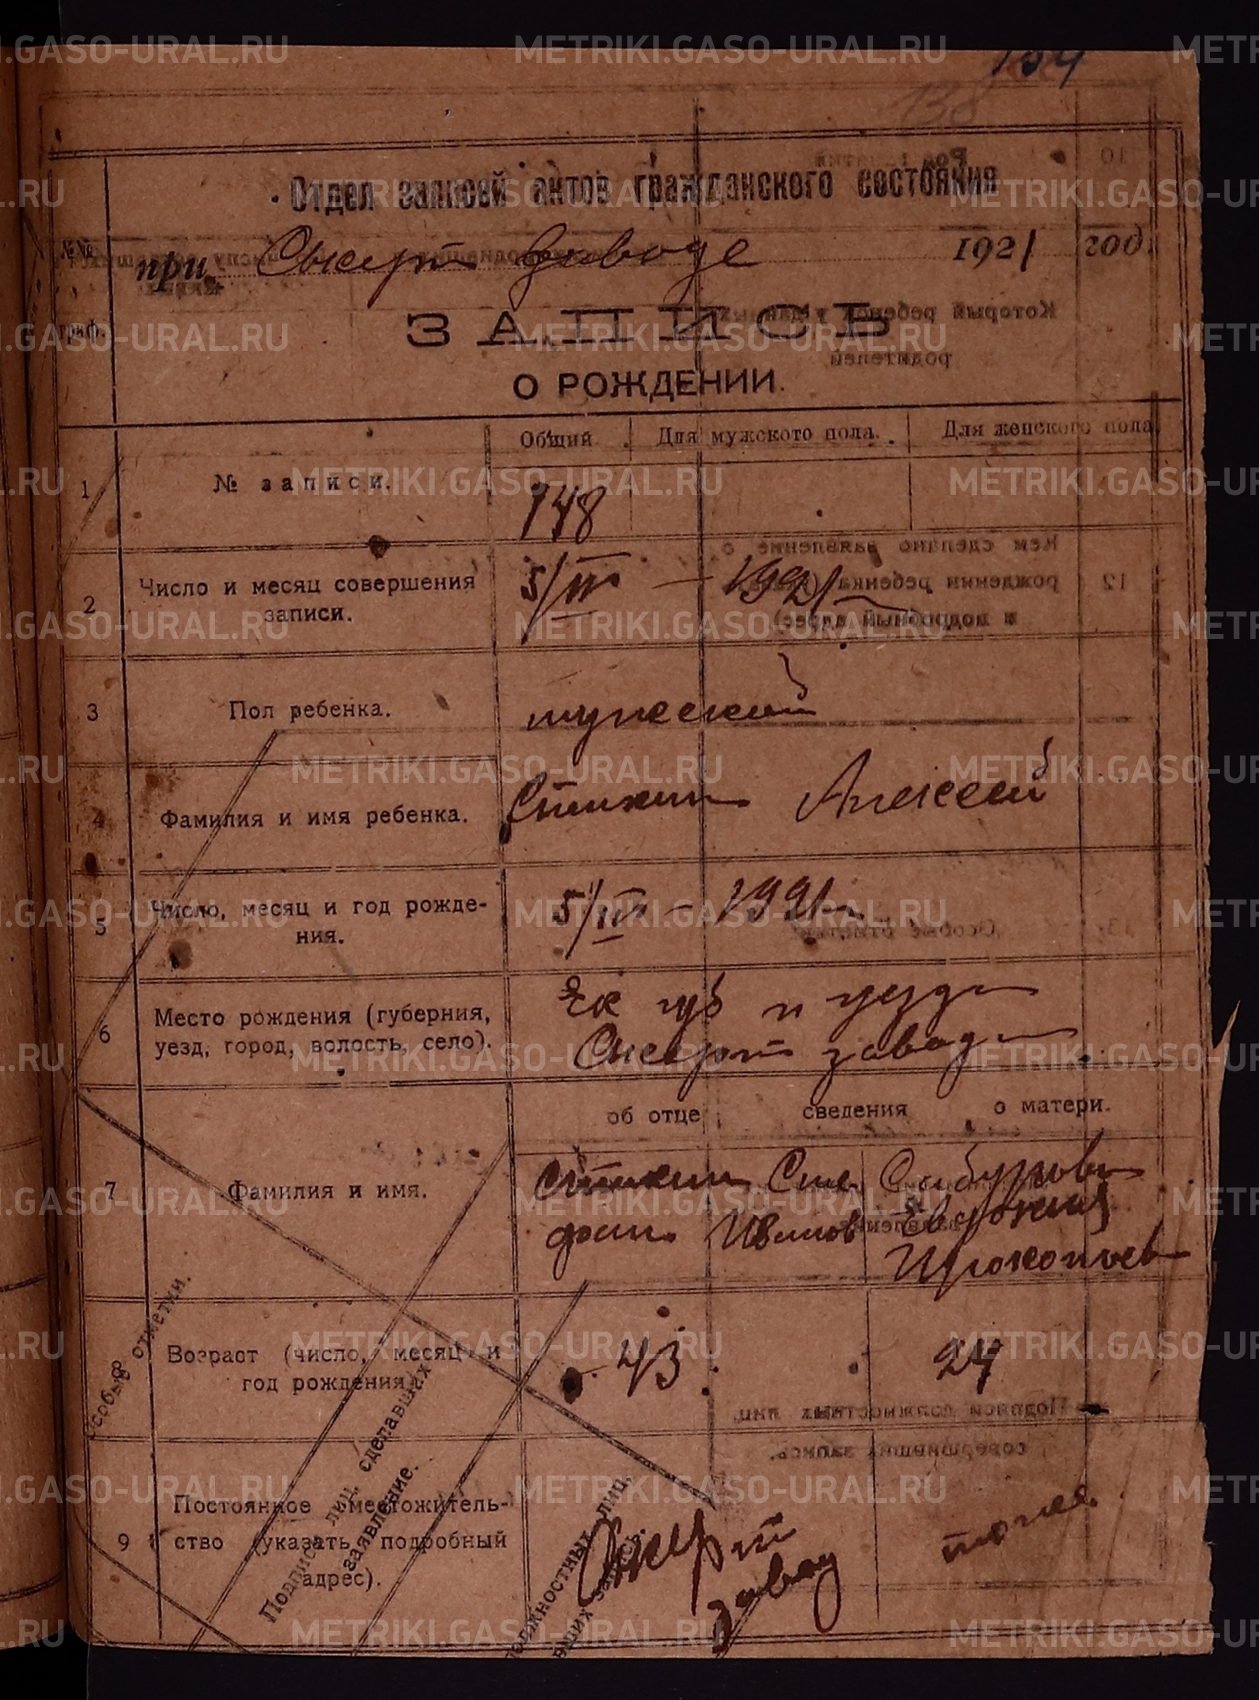 138
Отдел записей актов гражданского состояния
№№ граф.
при Сысерт Заводе 1921 год.
ЗАПИСЬ
О РОЖДЕНИИ.
Общий. Для мужского пола. Для женского пола.
1 № записи. 148
2 Число и месяц совершения записи. 5/III — 1921
3 Пол ребенка. мужской
4 Фамилия и имя ребенка. Алексей
5 Число, месяц и год рождения. 5/III — 1921
6 Место рождения (губерния, уезд, город, волость, село). Ек губ и уезда
Сысерт завода
об отце сведения о матери.
7 Фамилия и имя.
Иванов Евдокия
Прокопьев
8 Возраст (число, месяц и год рождения). 43 24
9 Постоянное местожительство (указать подробный адрес). Сысерт завод тоже
Особые отметки.
Подписи лиц, сделавших заявление.
должностных лиц,
METRIKI.GASO-URAL.RU